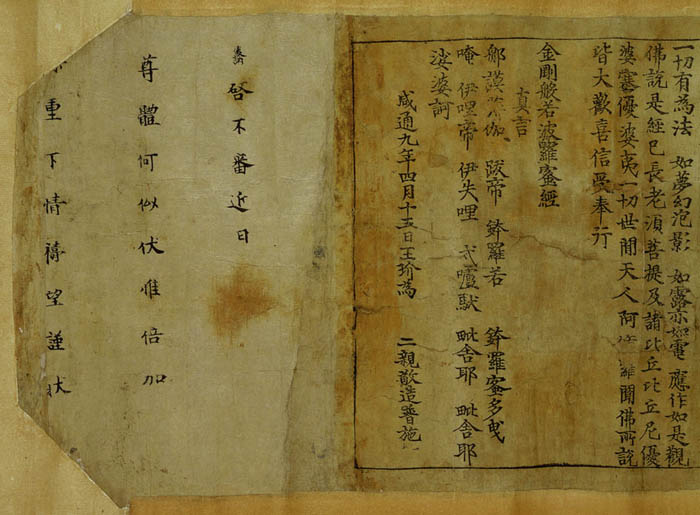 一切有為法 如夢幻泡影 如露亦如電 應作如是觀
佛說是經已長老須菩提及諸比丘比丘尼優
婆塞優婆夷一切世間天人阿修羅聞佛所說
皆大歡喜信受奉行
金剛般若波羅蜜經
真言
那謨薄伽 跋帝 鉢羅若 鉢羅蜜多曳
唵 伊哩帝 伊失哩 戍嚧馱 毗舍耶 毗舍耶
娑婆訶
咸通九年四月十五日王玠為 二親敬造普施
啓不審近日
尊體何似伏惟倍加
重下情禱望謹狀